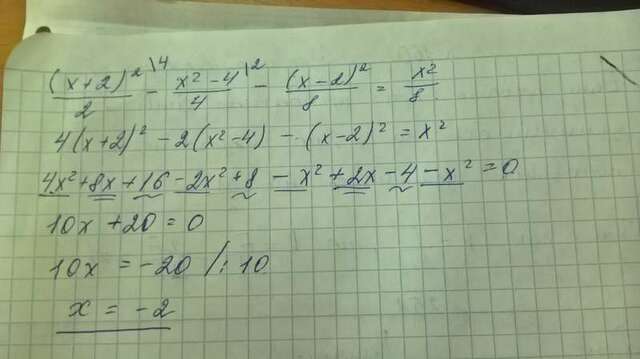 (x+2)²/2 \4 - (x²-4)/4 \2 - (x-2)²/8 = x²/8
4(x+2)² - 2(x²-4) - (x-2)² = x²
4x² + 8x + 16 - 2x² + 8 - x² + 2x - 4 - x² = 0
10x + 20 = 0
10x = -20 /: 10
x = -2